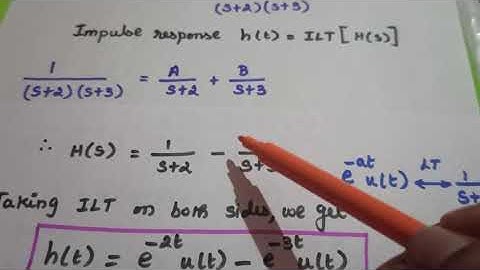 (S+2)(S+3)
Impulse response h(t) = ILT [H(S)]
1/(S+2)(S+3) = A/S+2 + B/S+3
∴ H(S) = 1/S+2 - /S+
e^-at u(t) ↔ LT 1/S+
Taking ILT on both sides, we get
h(t) = e^-2t u(t) - e^-3t u(t)